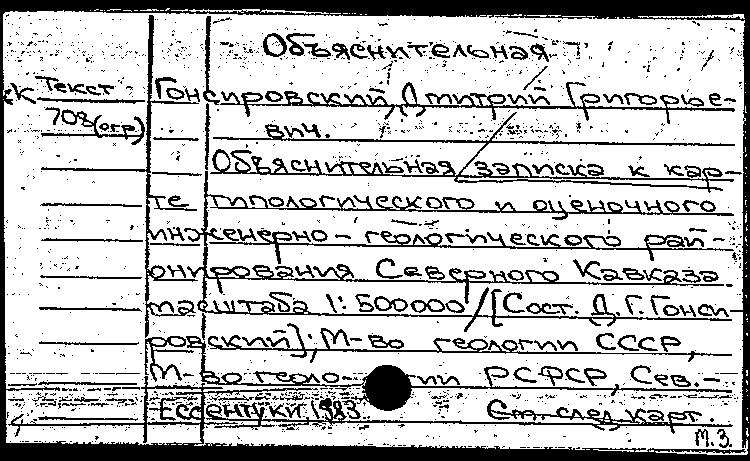 Объяснительная
К Текст Гонсировский, Дмитрий Григорье-
708(огр) вич.
Объяснительная записка к кар-
те типологического и оценочного
инженерно-геологического рай-
онирования Северного Кавказа
масштаба 1:500000/[Сост. Д.Г.Гонси-
ровский]; М-во геологии СССР,
М-во геоло-гии РСФСР, Сев.-
Ессентуки, 1983. См. след. карт.
М.З.